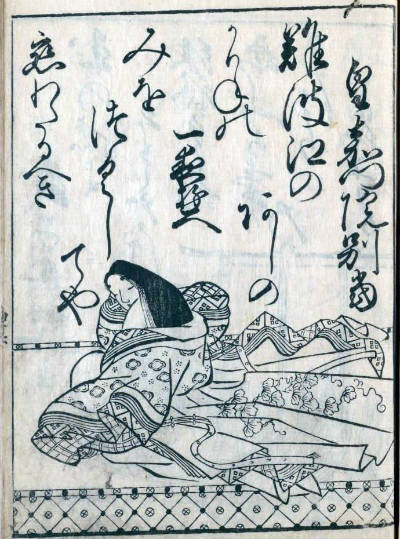 皇嘉門院別当
難波江の
あしの
かりねの
一夜ゆへ
みを
つくし
てや
恋わたるへき